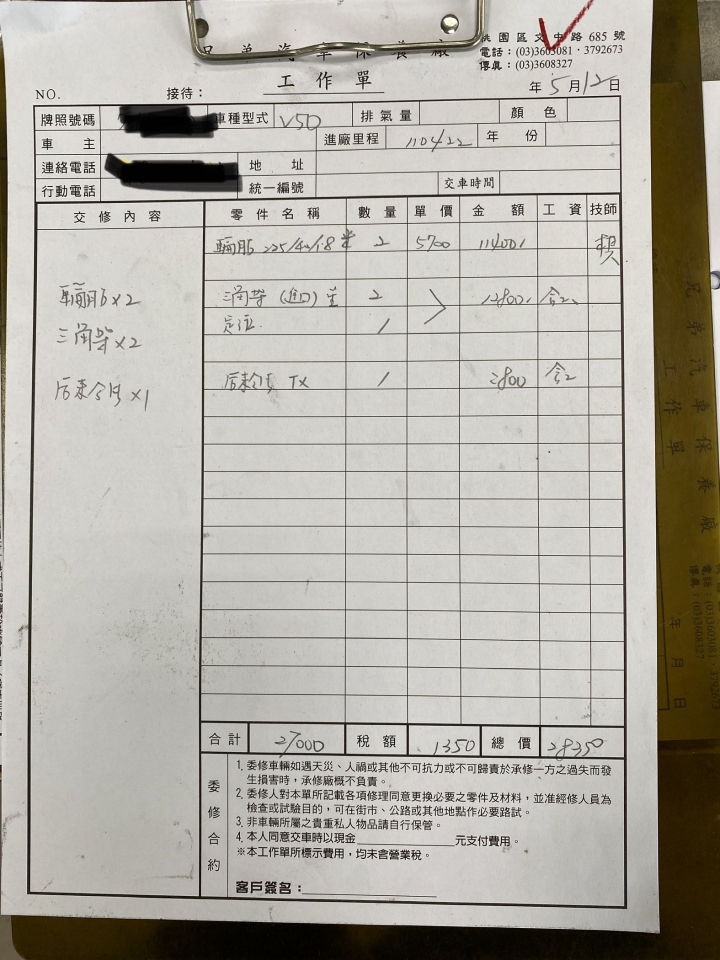 兄弟汽車保養廠
桃園區文中路685號
電話：(03)3603081・3792673
傳真：(03)3608327
工作單
NO. 接待： 年5月12日
牌照號碼 車種型式 V50 排氣量 顏色
車主 進廠里程 110422 年份
連絡電話 地址
行動電話 統一編號 交車時間
交修內容 零件名稱 數量 單價 金額 工資 技師
輪胎 225/40/18 2 5700 11400 賴
輪胎x2 三角架(進口) 2 12800 含工
三角架x2 定位 1
后來令片x1 后來令片 TX 1 2800 含工
合計 27000 稅額 1350 總價 28350
委修合約
1. 委修車輛如遇天災、人禍或其他不可抗力或不可歸責於承修一方之過失而發
生損害時，承修廠概不負責。
2. 委修人對本單所記載各項修理同意更換必要之零件及材料，並准經修人員為
檢查或試驗目的，可在街市、公路或其他地點作必要路試。
3. 非車輛所屬之貴重私人物品請自行保管。
4. 本人同意交車時以現金＿＿＿＿＿＿元支付費用。
※本工作單所標示費用，均未含營業稅。
客戶簽名：
兄弟汽車保養廠
工作單
電話：(03)3603081
傳真：(03)3608327
年 月 日